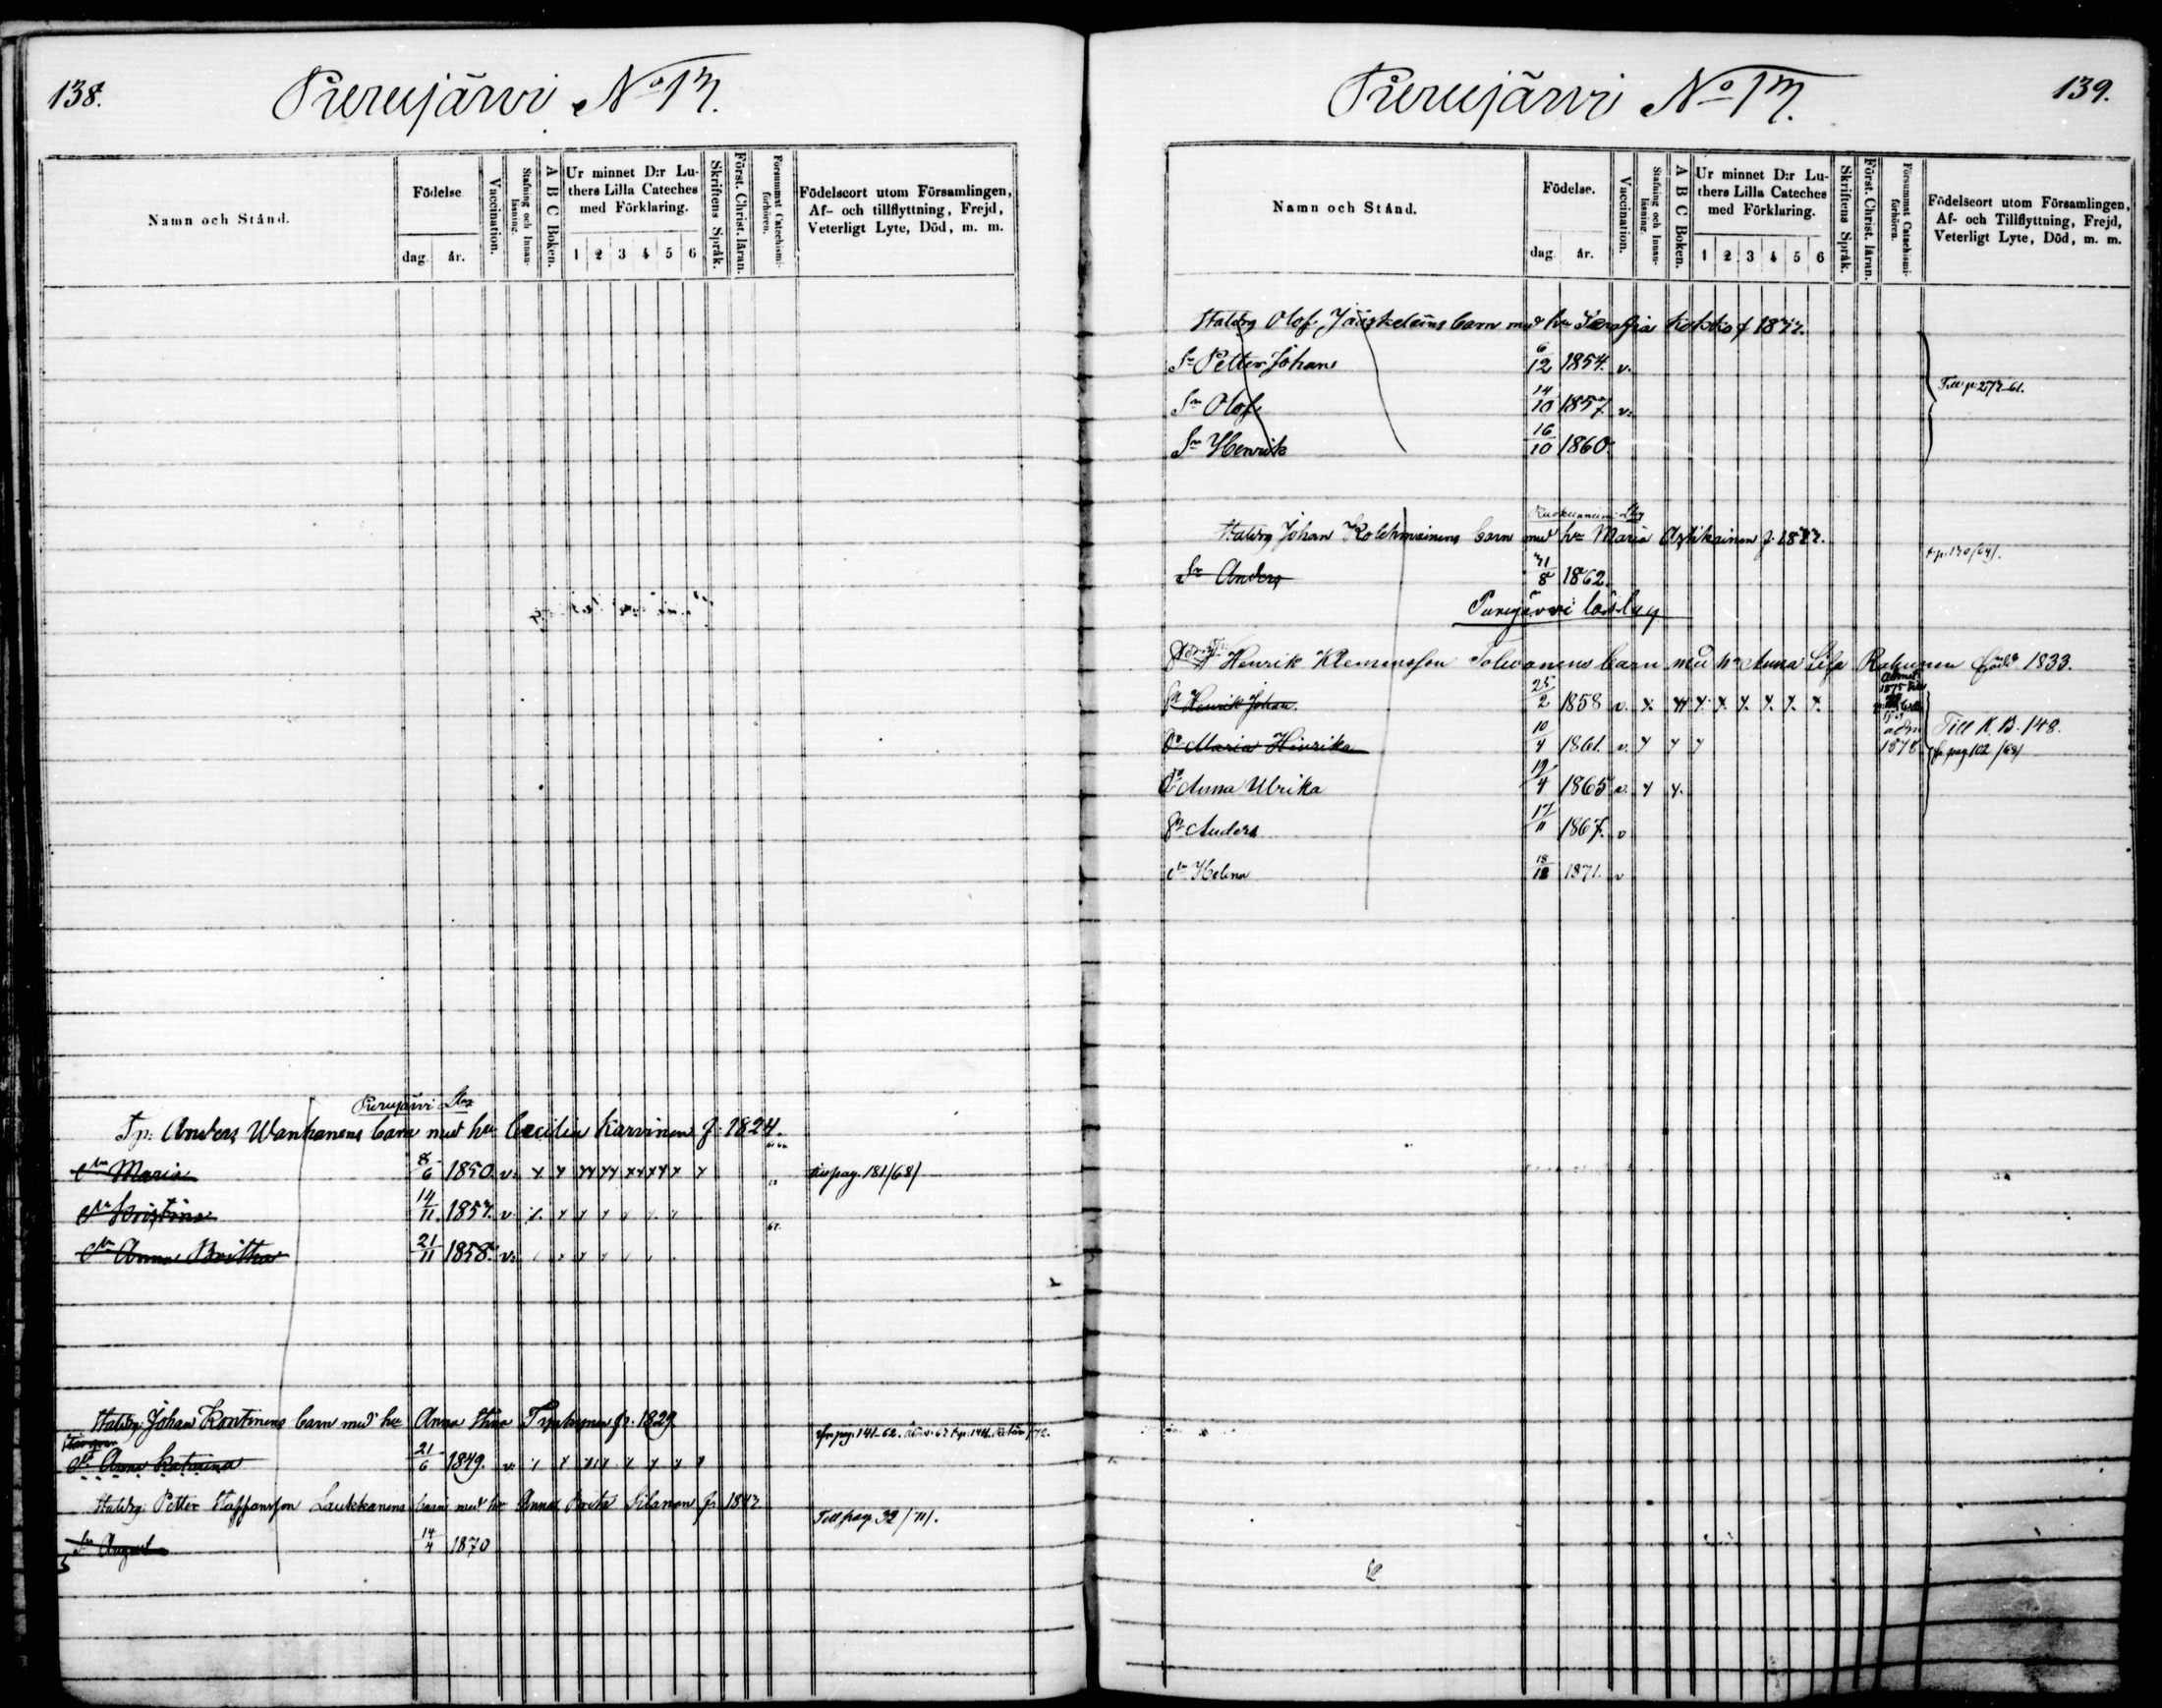 138.
Purujärvi No 17.
Namn och Stånd.
Födelse
dag. år.
Vaccination.
Stafning och Innan-läsning.
A B C Boken.
Ur minnet D:r Lu-
thers Lilla Cateches
med Förklaring.
1 2 3 4 5 6
Skriftens Språk.
Först. Christ. läran.
Försummat Catechismi-förhören.
Födelseort utom Församlingen,
Af- och tillflyttning, Frejd,
Veterligt Lyte, Död, m. m.
Purujärvi
Anders Wanhanens barn med hu Cecilia Karvinen f. 1824.
dr Maria 8/6 1850. v.
pag. 181/68/
dr Kristina 14/11 1857. v.
67.
dr Anna Britha 21/11 1858. v.
Johan Kontinens barn med hu Anna Stina f. 1829
dr Anna Katarina 21/6 1849. v.
Petter Staffansson Laukkanens barn med hu Anna Brita Silanen f. 184
Till pag. 32/71/.
Sn August 14/4 1870
139.
Purujärvi No 17.
Namn och Stånd.
Födelse.
dag. år.
Vaccination.
Stafning och Innan-läsning.
A B C Boken.
Ur minnet D:r Lu-
thers Lilla Cateches
med Förklaring.
1 2 3 4 5 6
Skriftens Språk.
Först. Christ. läran.
Försummat Catechismi-förhören.
Födelseort utom Församlingen,
Af- och Tillflyttning, Frejd,
Veterligt Lyte, Död, m. m.
Olof Jääskeläins barn med hu
Sn Petter Johan 6/12 1854. v.
Sn Olof 14/10 1857. v.
Sn Henrik 16/10 1860.
Johan Kolehmainens barn med hu Maria
Sn Anders 1862.
Purujärvi lösbeg
Henrik Klemensson Tolvanens barn med hu Anna Lisa född 1833.
Sn Henrik Johan. 25/2 1858 v.
Till K. B. 148.
dr Maria Hinrika 10/4 1861. v.
1878
pag. 102/
dr Anna Ulrika 19/4 1865 v.
Sn Anders 17/11 1867. v
dr Helena 18/12 1871. v